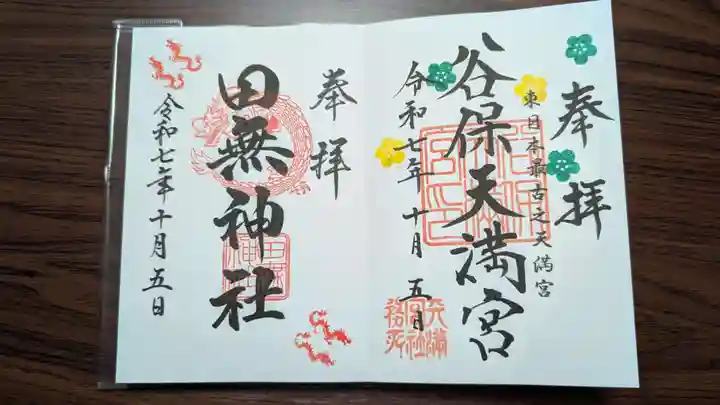 奉拝
東日本最古之天満宮
谷保天満宮
令和七年十月五日
天満宮社務所
奉拝
田無神社
令和七年十月五日